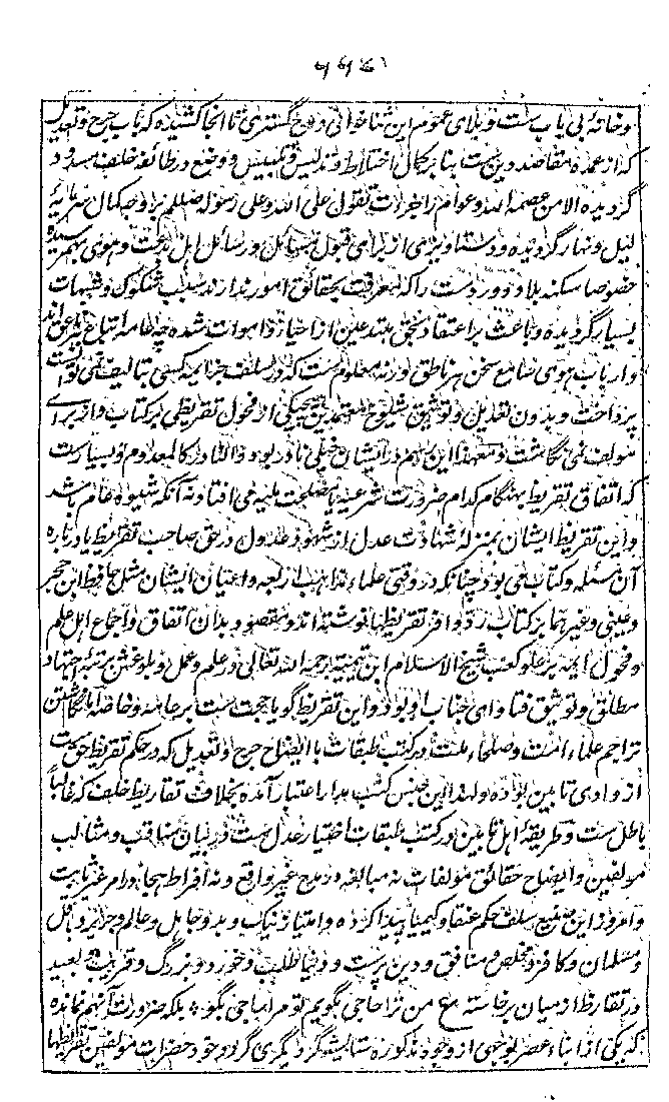 و خانهٔ بی باب ست و بلای عموم این ثناخوانی و مدح گستری تا آنجا کشیده که باب جرح و تعدیل
که از عمده مقاصد دین ست بنا بر کمال اختلاط و تدلیس و تلبیس و وضع در طائفه خلف مسدود
گردیده الا من عصمه الله و عوام را جرات تقول علی الله و علی رسوله صللم بر وجه کمال سرمایهٔ
لیل و نهار گردیده و دستاویزی از برای قبول مسائل و رسائل اهل بدعت و هوی بهم رسیده
خصوصا سکنه بلاد دور دست را که معرفت بحقائق امور ندارند سبب شکوک و شبهات
بسیار گردیده و باعث بر اعتقاد بحق مبتدعین از احیا و اموات شده چه عامه اتباع هر ناعق اند
و ارباب هوی سامع سخن هر ناطق ورنه معلوم ست که در سلف جز ایمه کسی بتالیف نمی توانست
پرداخت و بدون تعدیل و توثیق شیوخ معتمدین هیچیکی از فحول تقریظی بر کتاب و از برای
مولف نمی نگاشت و معهذا این هم در ایشان خیلی نادر بود و النادر کالمعدوم و بسیارست
که اتفاق تقریظ بهنگام کدام ضرورت شرعیه یا مصلحت ملیه می افتاد نه آنکه شیوه عام باشد
و این تقریظ ایشان بمنزلهٔ شهادت عدل از شهود عدول در حق صاحب تقریظ یا درباره
آن مسئله و کتاب می بود چنانکه در وقتی علماء مذاهب اربعه و اعیان ایشان مثل حافظ ابن حجر
و عینی و غیرهما بر کتاب رد وافر تقریظها نوشته اند و مقصود بدان اتفاق و اجماع اهل علم
و فحول ایمه بر علو کعب شیخ الاسلام ابن تیمیه رحمه الله تعالی در علم و عمل و بلوغش برتبهٔ اجتهاد
مطلق و توثیق فتاوای جناب او بود و این تقریظ گویا حجت ست بر عامه و خاصه یا نگاشتن
تراجم علماء امت و صلحاء ملت در کتب طبقات با ایضاح جرح و تعدیل که در حکم تقریظ حق ست
از وادی تابین بوده ولهذا این جنس کتب مدار اعتبار آمده بخلاف تقاریظ خلف که غالبا
باطل ست و طریقهٔ اهل تابین در کتب طبقات اختیار عدل ست در بیان مناقب و مثالب
مولفین و ایضاح حقائق مولفات نه مبالغه در مدح غیر واقع و نه افراط هجا در امر غیر ثابت
و امروز این صنیع سلف حکم عنقا و کیمیا پیدا کرده و امتیاز نیک و بد و جاهل و عالم و
و مسلمان و کافر و مخلص و منافق و دین پرست و دنیا طلب و خورد و بزرگ و قریب و بعید
در تقارظ از میان برخاسته ع من ترا حاجی بگویم تو مرا حاجی بگو ؛ بلکه ضرورت آنهم نمانده
که یکی از ابناء عصر بوجهی از وجوه مذکوره ستایشگر دیگری گردد خود حضرات مولفین تقریظها